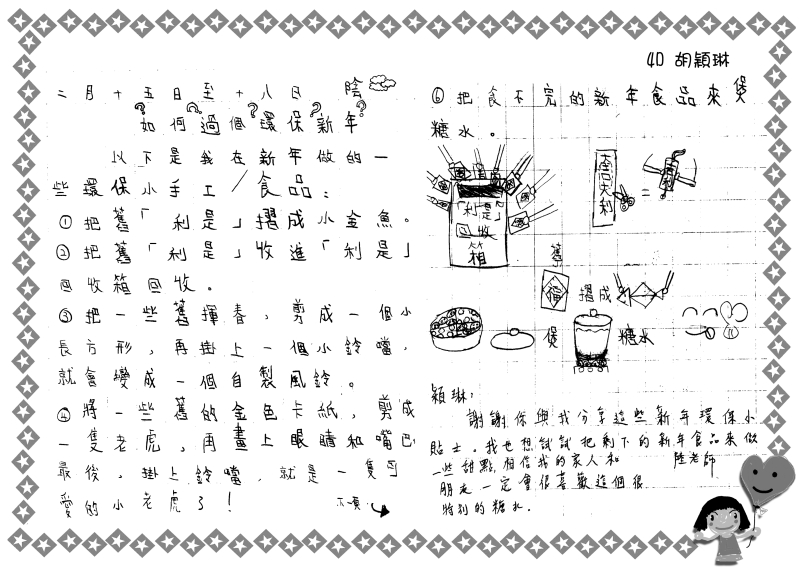 4D 胡穎琳
二月十五日至十八日 陰
如何過個環保新年
以下是我在新年做的一
些環保小手工/食品：
①把舊「利是」摺成小金魚。
②把舊「利是」收進「利是」
回收箱回收。
③把一些舊揮春，剪成一個小
長方形，再掛上一個小鈴噹，
就會變成一個自製風鈴。
④將一些舊的金色卡紙，剪成
一隻老虎，再畫上眼睛和嘴巴
最後，掛上鈴噹，就是一隻可
愛的小老虎了！
下頁
⑥把食不完的新年食品來煲
糖水。
「利是」
回收
箱
大吉大利
=
舊
福
摺成
煲
糖水
穎琳：
謝謝你與我分享這些新年環保小
貼士。我也想試試把剩下的新年食品來做
一些甜點，相信我的家人和
陸老師
朋友一定會很喜歡這個很
特別的糖水.